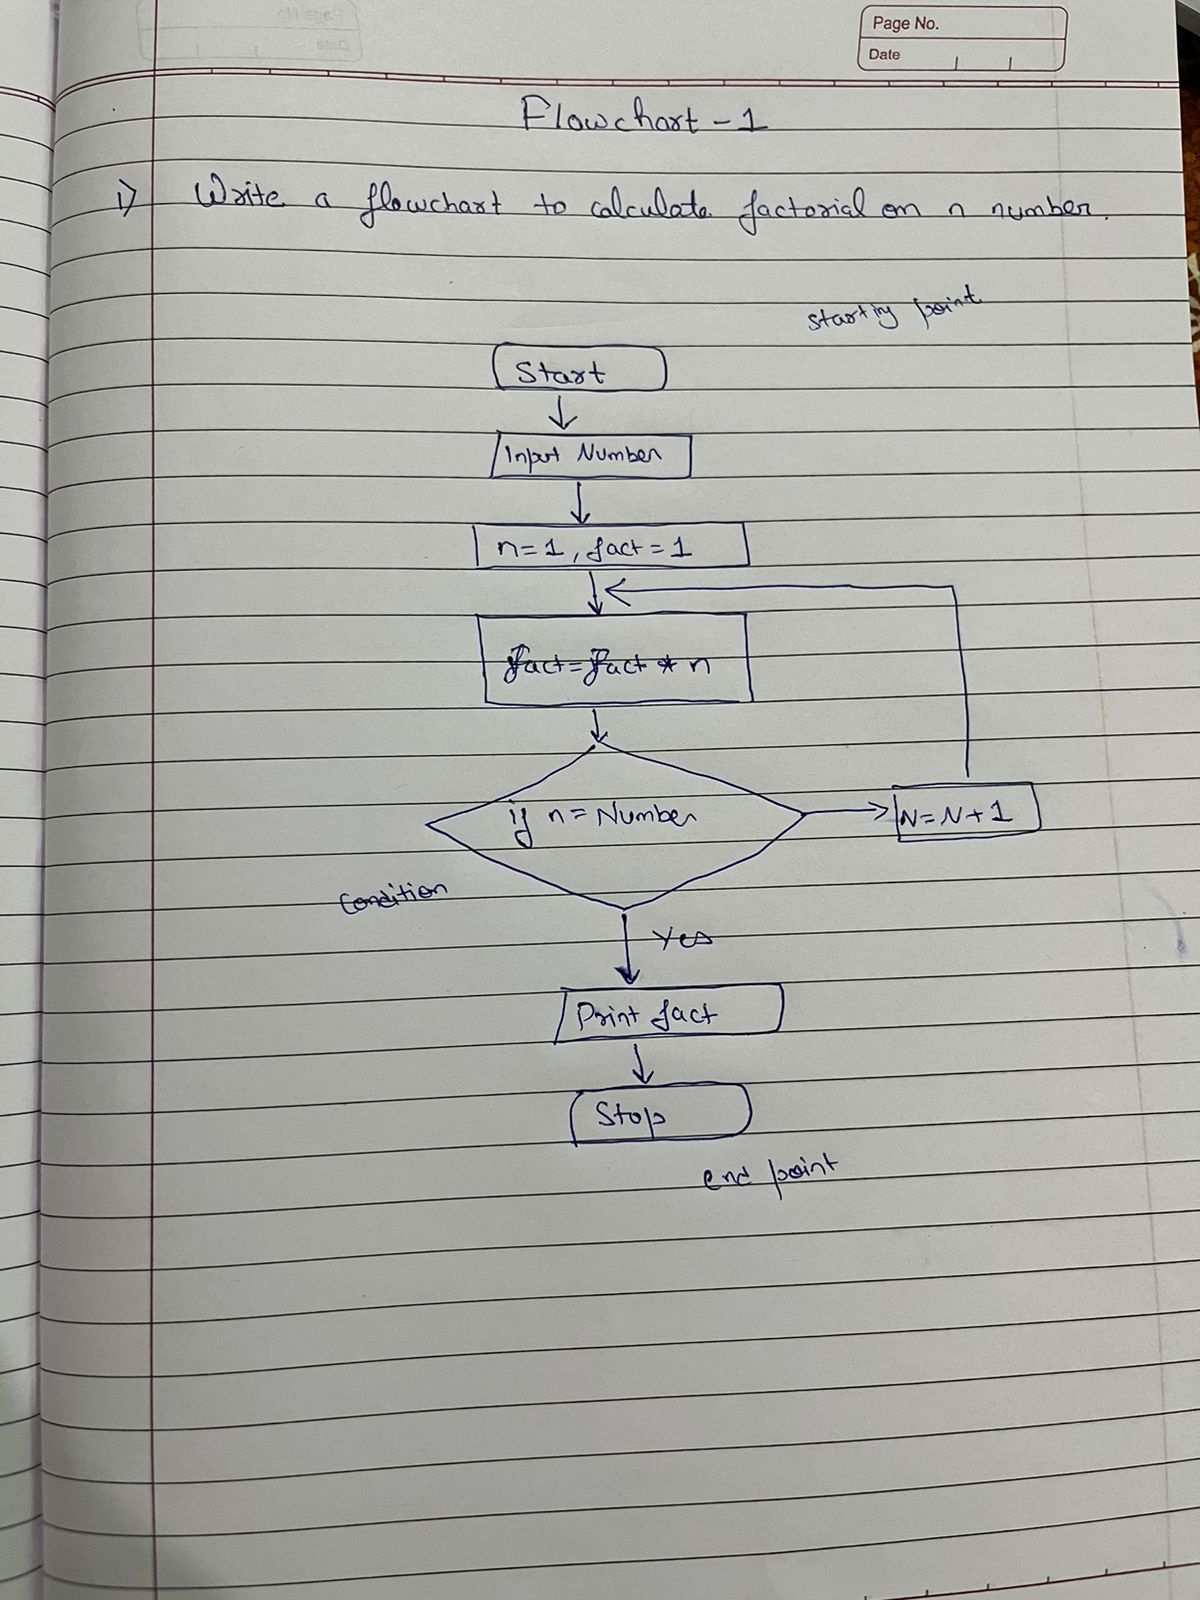 Page No.
Date
Flowchart - 1
1) Write a flowchart to calculate factorial on n number.
starting point
Start
Input Number
n=1, fact=1
fact=fact * n
if n= Number
N=N+1
Condition
Yes
Print fact
Stop
end point